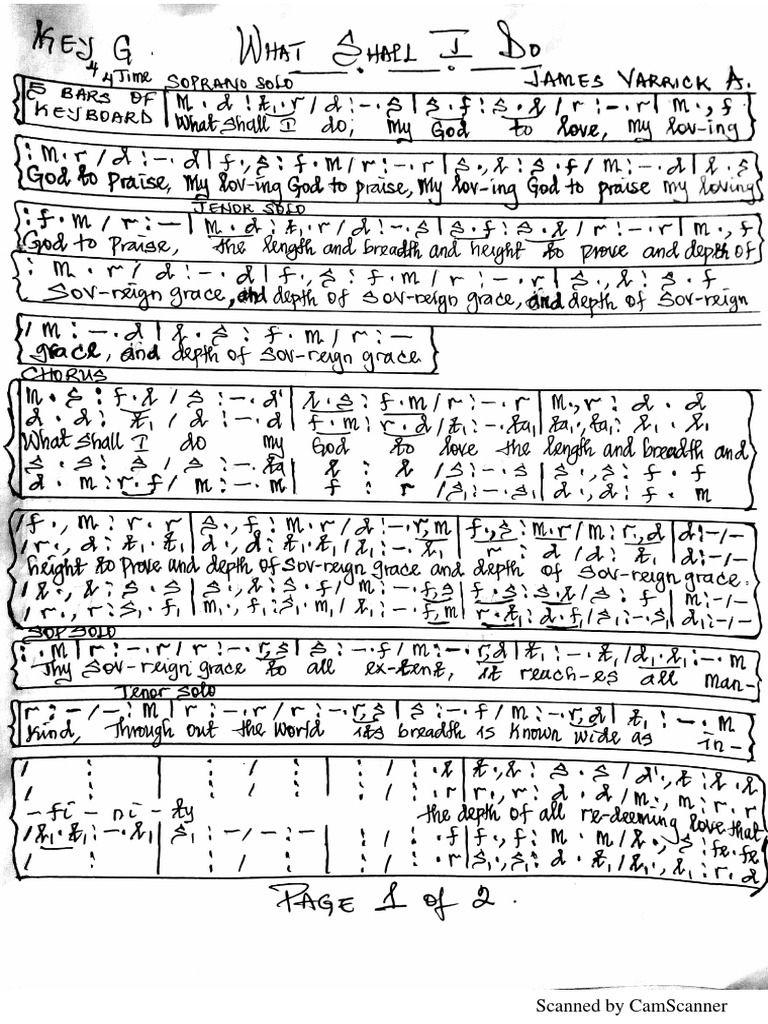 KEY G. WHAT SHALL I DO
4/4 Time SOPRANO SOLO JAMES VARRICK A.
5 BARS OF KEYBOARD
m . d : t₁ . r / d : - . s | s . f : s . l / r : - . r | m . , f
What shall I do, my God to love, my lov-ing
: m . r / d : - . d | f . , s : f . m / r : - . r | s . , l : s . f / m : - . d | l . s
God to praise, My lov-ing God to praise, My lov-ing God to praise my loving
TENOR SOLO
: f . m / r : - | m . d : t₁ . r / d : - . s | s . f : s . l / r : - . r | m . , f
God to Praise, the length and breadth and height to prove and depth of
: m . r / d : - . d | f . , s : f . m / r : - . r | s . , l : s . f
Sov-reign grace, and depth of sov-reign grace, and depth of sov-reign
/ m : - . d | l . s : f . m / r : -
grace, and depth of sov-reign grace
CHORUS
m . s : f . l / s : - . d' | l . s : f . m / r : - . r | m . , r : d . d
d . d : t₁ / d : - . d | f . m : r . d / t₁ : - . ta₁ | ta₁ . , ta₁ : l₁ . l₁
What shall I do my God to love the length and breadth and
s . s : s / s : - . ta | l : l / s : - . s | s . , s : f . f
d . m : r . f / m : - . m | f : r / s₁ : - . s₁ | d . , d : f . m
/ f . , m : r . r | s . , f : m . r / d : - . r , m | f . , s : m . r / m : r , d | d : - / -
/ r . , d : t₁ . t₁ | d . , d : t₁ . t₁ / l₁ : - . l₁ | r : d / d : t₁ | d : - / -
height to prove and depth of sov-reign grace and depth of sov-reign grace.
/ l . , l : s . s | s . , l : s . f / m : - . f , s | f . s : s . l / s : f | m : - / -
/ r . , r : s₁ . f₁ | m₁ . , f₁ : s₁ . m₁ / l₁ : - . f , m | r . t₁ : d . f₁ / s₁ : - . s₁ | d₁ : - / -
SOP SOLO
: . m | r : - . r / r : - . r , s | s : - . f / m : - . r , d | t₁ : - . t₁ / d₁ . l₁ : - . m
Thy Sov-reign grace to all ex-tent, it reach-es all man-
Tenor Solo
r : - / - : m | r : - . r / r : - . r , s | s : - . f / m : - . r , d | t₁ : - . m
kind, Through out the world its breadth is known wide as in-
/ : | : / : | : / : . l | t . , l : s . s / d' . , t : l . l
/ : | : / : | : / : . r | r . , r : d . d / m . , m : r . r
-fi-ni-ty the depth of all re-deeming love that
/ l₁ . t₁ : - . l₁ | s₁ : - / - : - | : / : . f | f . , f : m . m / l . , s : fe . fe
/ : | : / : | : / : . r | s₁ . , s₁ : d . t₁ / l₁ . , l₁ : r . d
PAGE 1 of 2.
Scanned by CamScanner